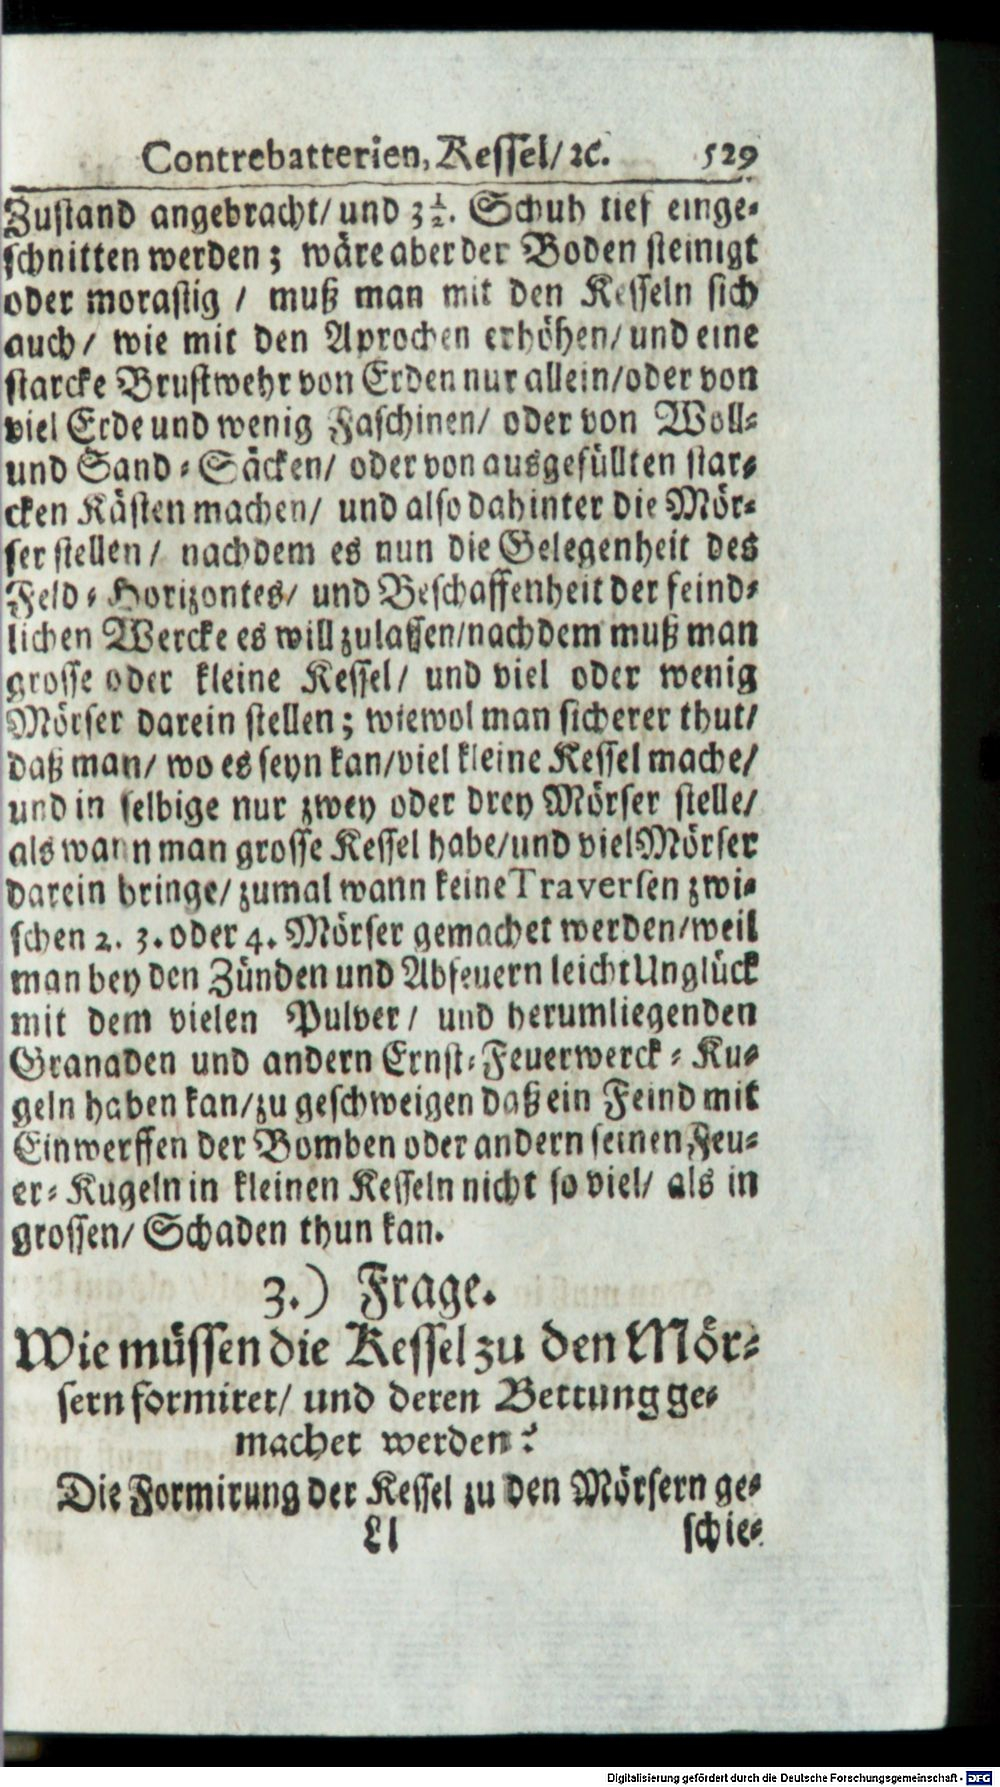 Contrebatterien, Kessel/ ꝛc. 529
Zustand angebracht/ und 3½. Schuh tief einge-
schnitten werden; wäre aber der Boden steinigt
oder morastig / muß man mit den Kesseln sich
auch/ wie mit den Aprochen erhöhen/ und eine
starcke Brustwehr von Erden nur allein/ oder von
viel Erde und wenig Faschinen/ oder von Woll-
und Sand-Säcken/ oder von ausgefüllten star-
cken Kästen machen/ und also dahinter die Mör-
ser stellen/ nachdem es nun die Gelegenheit des
Feld-Horizontes/ und Beschaffenheit der feind-
lichen Wercke es will zulassen/ nachdem muß man
grosse oder kleine Kessel/ und viel oder wenig
Mörser darein stellen; wiewol man sicherer thut/
daß man/ wo es seyn kan/ viel kleine Kessel mache/
und in selbige nur zwey oder drey Mörser stelle/
als wann man grosse Kessel habe/ und viel Mörser
darein bringe/ zumal wann keine Traversen zwi-
schen 2. 3. oder 4. Mörser gemachet werden/ weil
man bey den Zünden und Abfeuern leicht Unglück
mit dem vielen Pulver/ und herumliegenden
Granaden und andern Ernst-Feuerwerck-Ku-
geln haben kan/ zu geschweigen daß ein Feind mit
Einwerffen der Bomben oder andern seinen Feu-
er-Kugeln in kleinen Kesseln nicht so viel/ als in
grossen/ Schaden thun kan.
3.) Frage.
Wie müssen die Kessel zu den Mör-
sern formiret/ und deren Bettung ge-
machet werden?
Die Formirung der Kessel zu den Mörsern ge-
Ll schie-
Digitalisierung gefördert durch die Deutsche Forschungsgemeinschaft - DFG